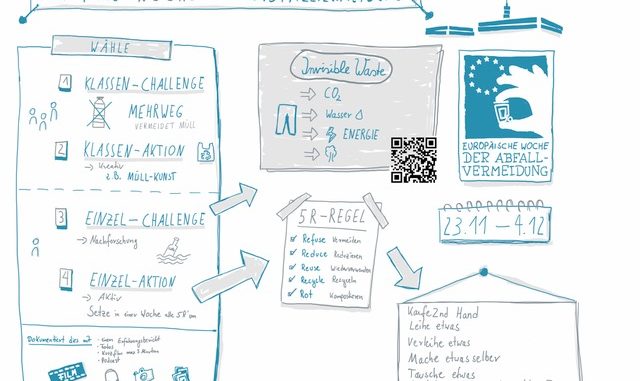 WÄHLE
1 KLASSEN-CHALLENGE
MEHRWEG
VERMEIDET MÜLL
2 KLASSEN-AKTION
→ Kreativ
z.B. MÜLL-KUNST
3 EINZEL-CHALLENGE
→ Nachforschung
4 EINZEL-AKTION
→ Aktiv
Setze in einer Woche alle 5R um
Dokumentiert das mit
Podcast
FILM
Invisible Waste
CO2
Wasser
ENERGIE
5R-REGEL
Refuse Vermeiden
Reduce Reduzieren
Reuse Wiederverwenden
Recycle Recyceln
Rot Kompostieren
EUROPÄISCHE WOCHE
DER ABFALL-
VERMEIDUNG
23.11 – 4.12
Kaufe 2nd Hand
Leihe etwas
Verleihe etwas
Mache etwas selber
Tausche etwas